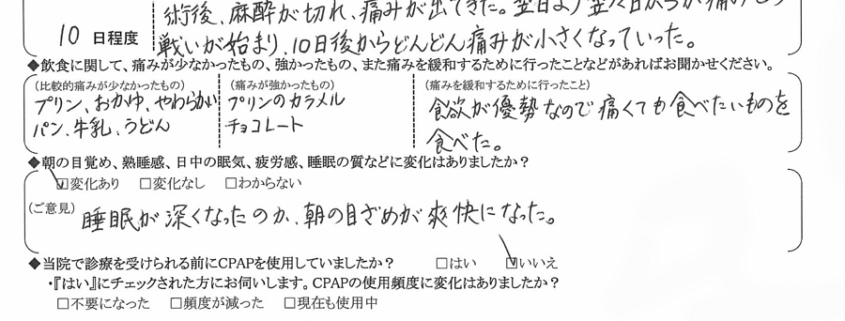 術後、麻酔が切れ、痛みが出てきた。翌日より翌々日からが痛みとの
10 日程度 戦いが始まり、10日後からどんどん痛みが小さくなっていった。
◆飲食に関して、痛みが少なかったもの、強かったもの、また痛みを緩和するために行ったことなどがあればお聞かせください。
(比較的痛みが少なかったもの) (痛みが強かったもの) (痛みを緩和するために行ったこと)
プリン、おかゆ、やわらかい プリンのカラメル 食欲が優勢なので痛くても食べたいものを
パン、牛乳、うどん チョコレート 食べた。
◆朝の目覚め、熟睡感、日中の眠気、疲労感、睡眠の質などに変化はありましたか?
☑変化あり □変化なし □わからない
(ご意見) 睡眠が深くなったのか、朝の目ざめが爽快になった。
◆当院で診療を受けられる前にCPAPを使用していましたか? □はい ☑いいえ
・『はい』にチェックされた方にお伺いします。CPAPの使用頻度に変化はありましたか?
□不要になった □頻度が減った □現在も使用中